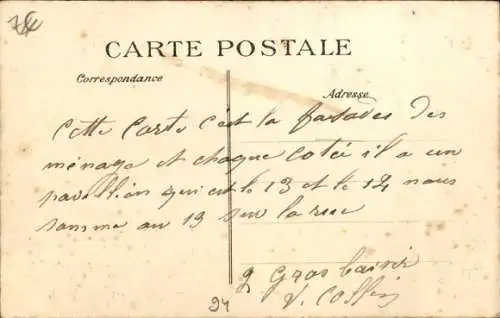 CARTE POSTALE
Correspondance
Adresse
cette Carte c'est la fasades des
ménage et chaque cotée il a un
pavillion qui est le 13 et le 12 nous
somme au 13 sur la rue
gros baiser
V. Collin
94